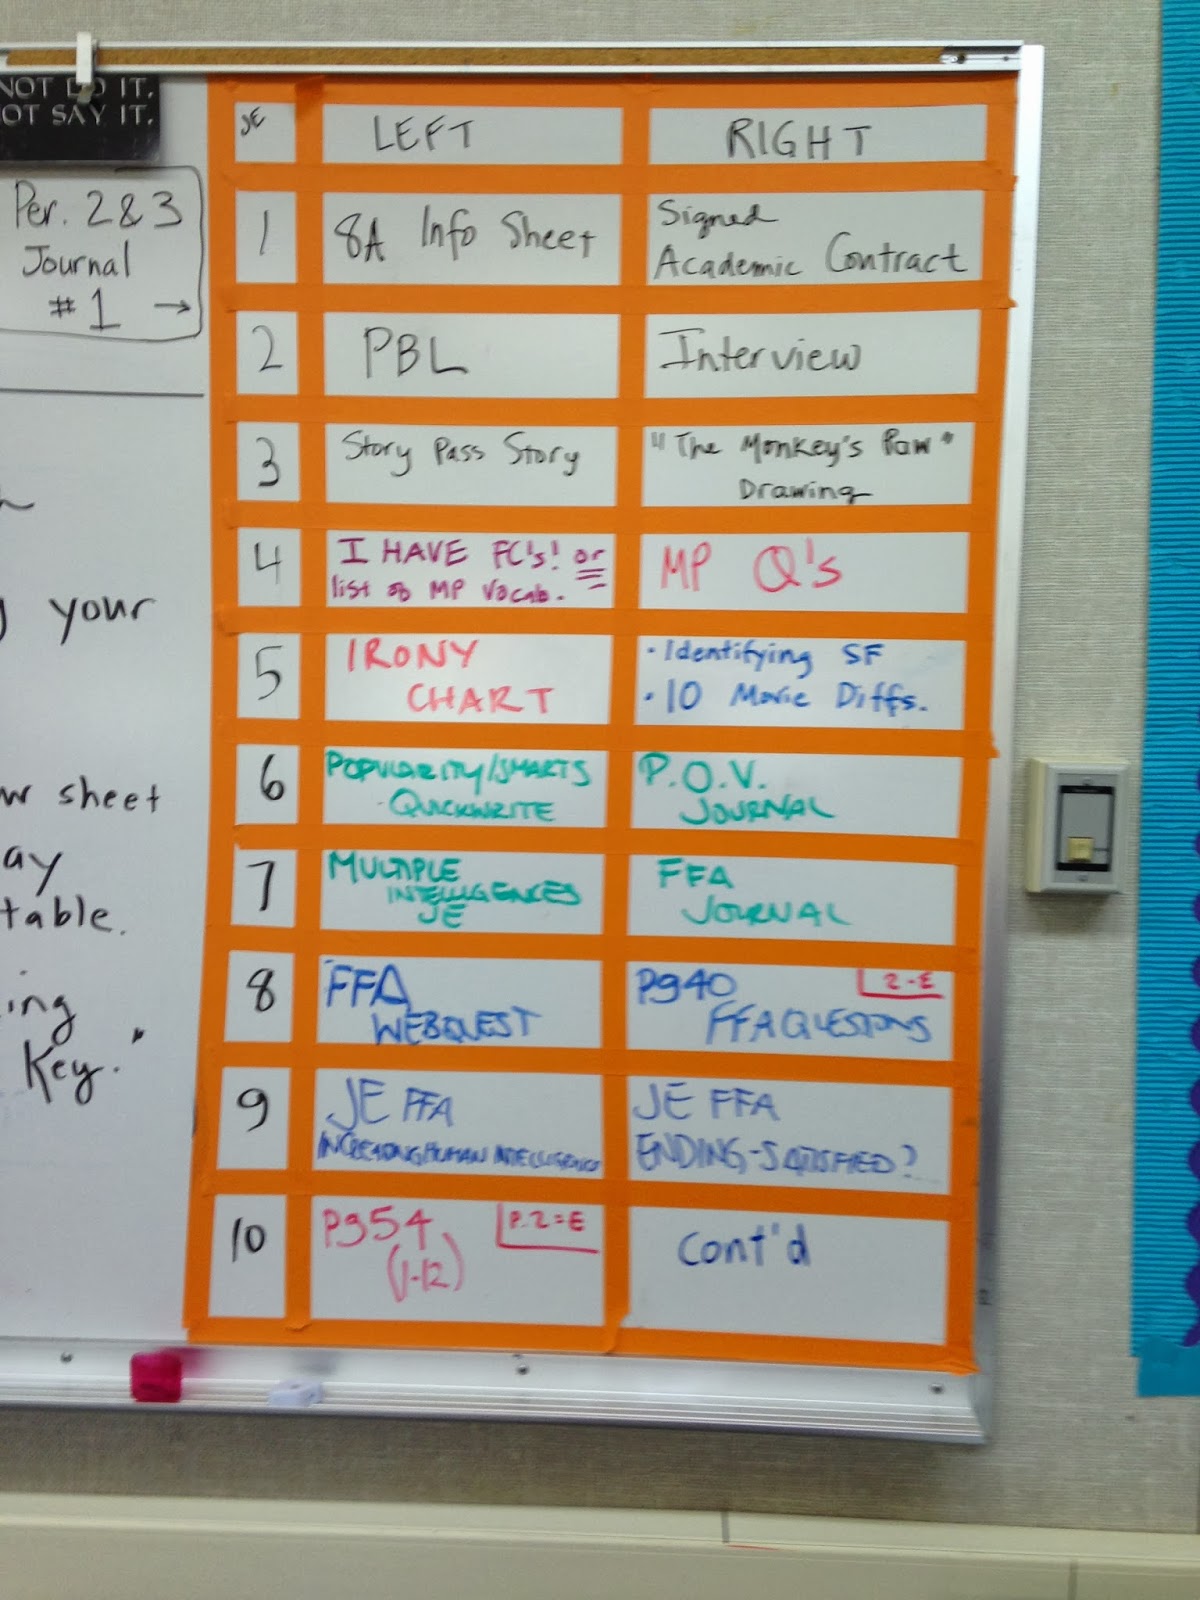 NOT DO IT.
NOT SAY IT.
Per. 2 & 3
Journal
#1 →
your
sheet
ay
table.
ing
Key."
JE LEFT RIGHT
1 8A Info Sheet Signed
Academic Contract
2 PBL Interview
3 Story Pass Story "The Monkey's Paw"
Drawing
4 I HAVE FC's! or
list of MP Vocab. MP Q's
5 IRONY
CHART · Identifying SF
· 10 Movie Diffs.
6 POPULARITY/SMARTS
QUICKWRITE P.O.V.
JOURNAL
7 MULTIPLE
INTELLIGENCES
JE FFA
JOURNAL
8 FFA
WEBQUEST Pg40 2-E
FFA QUESTIONS
9 JE FFA
INCREASING HUMAN INTELLIGENCE JE FFA
ENDING-SATISFIED?
10 Pg54 P.2=E
(1-12) Cont'd